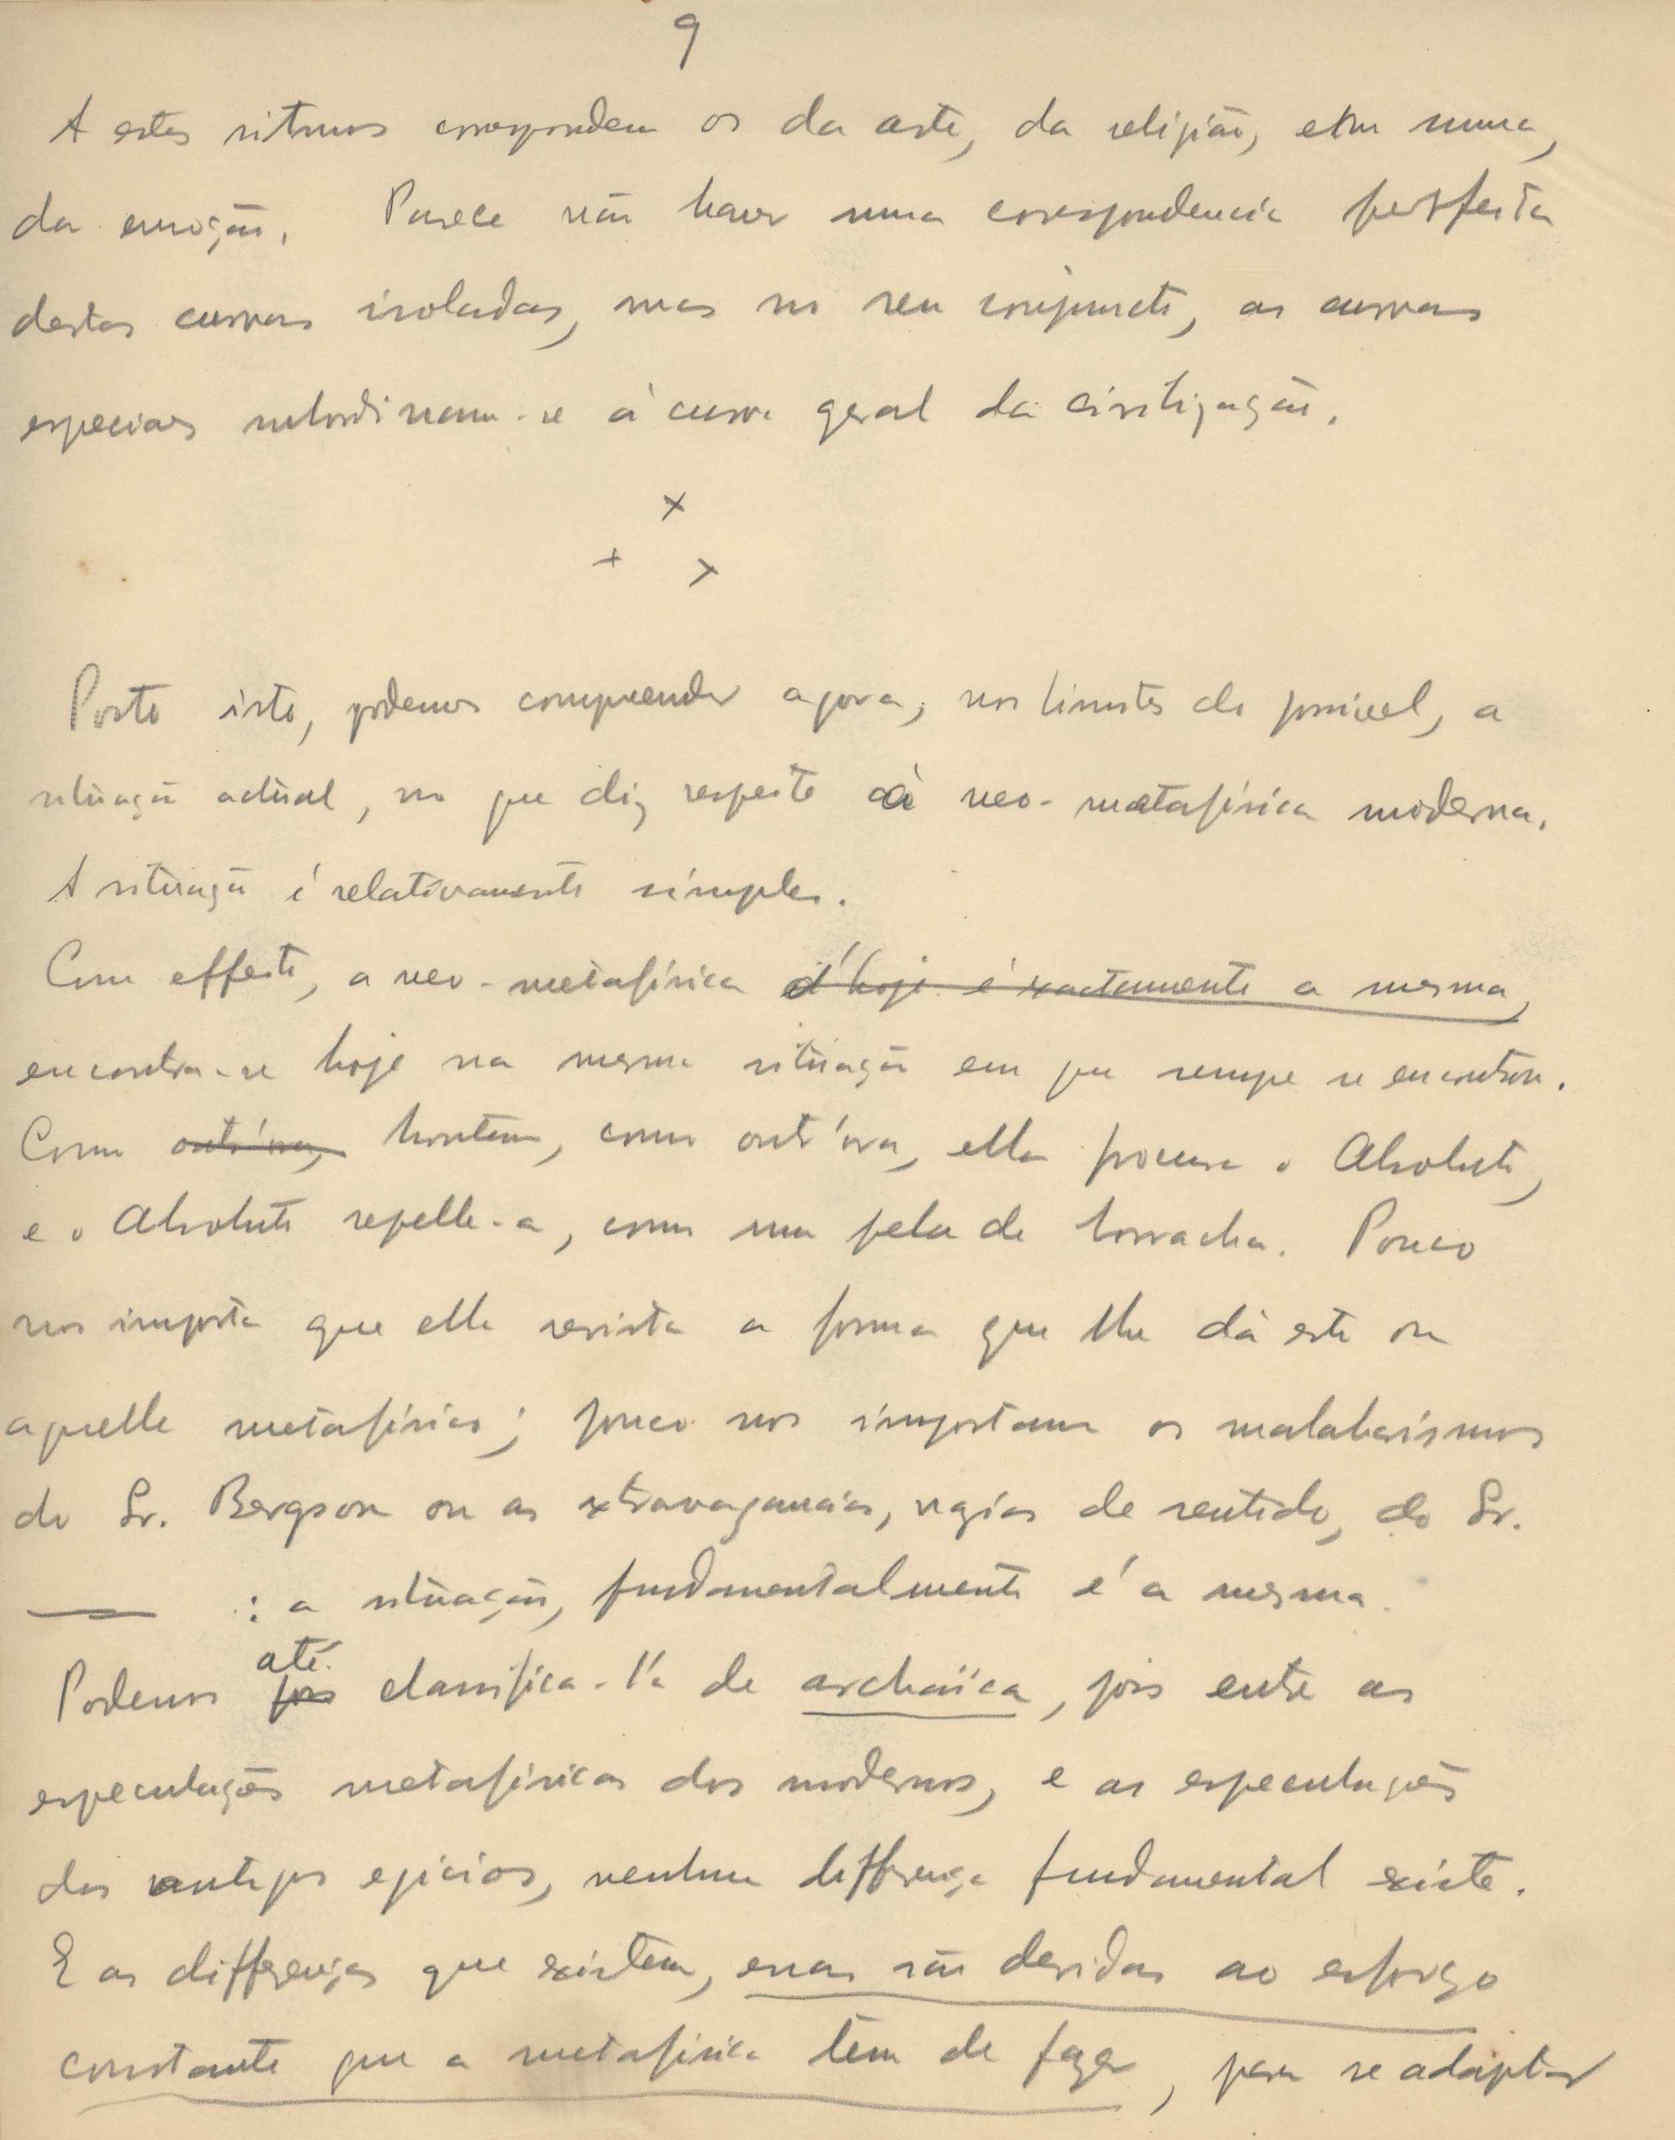 9
A estes ritmos correspondem os da arte, da religião, em suma,
da emoção. Parece não haver uma correspondencia perfeita
destas curvas isoladas, mas no seu conjuncto, as curvas
especiaes subordinam-se á curva geral da civilização.
x
+ x
Posto isto, podemos comprender agora, nos limites do possivel, a
situação actual, no que diz respeito à neo-metafísica moderna.
A situação é relativamente simples.
Com effeito, a neo-metafísica d'hoje é exactamente a mesma,
encontra-se hoje na mesma situação em que sempre se encontrou.
Como outr'ora, hontem, como outr'ora, ella procura o Absoluto,
e o Absoluto repelle-a, como uma pela de borracha. Pouco
nos importa que ella revista a forma que lhe dá este ou
aquelle metafísico; pouco nos importam os malabarismos
do Sr. Bergson ou as extravagancias, vazias de sentido, do Sr.
— : a situação, fundamentalmente é a mesma.
até
Podemos pois classifica-l'a de archaïca, pois entre as
especulações metafísicas dos modernos, e as especulações
dos antigos egípcios, nenhuma differença fundamental existe.
E as differenças que existem, essas são devidas ao esforço
constante que a metafísica tem de fazer, para se adaptar